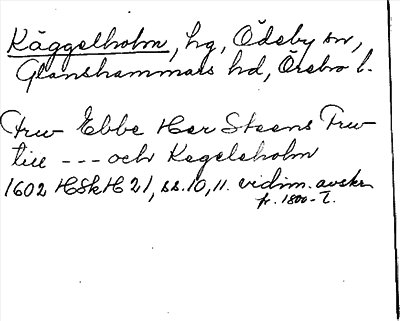 Käggelholm, hg, Ödeby sn,
Glanshammars hd, Örebro l.
Frw Ebbe Her Steens Frw
till --- och Kegelsholm
1602 HSkH 21, ss. 10, 11. vidim. avskr.
fr. 1800-t.